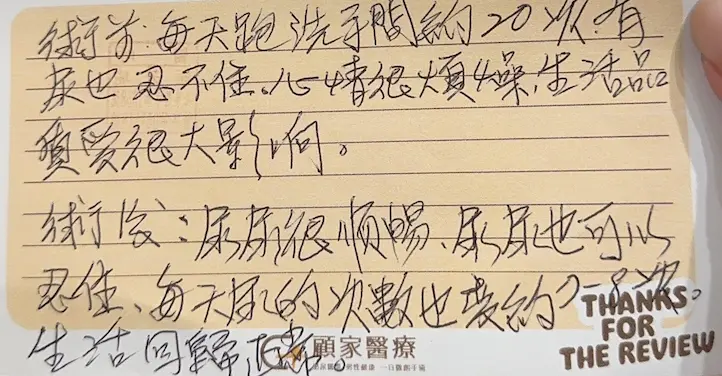 術前:每天跑洗手間約20次,有
尿也忍不住、心情很煩燥,生活品
質受很大影响。
術後:尿尿很順暢、尿尿也可以
忍住、每天尿的次數也變約7-8次。
生活回歸正常。
顧家醫療
泌尿醫學 男性健康 一日微創手術
THANKS
FOR
THE REVIEW